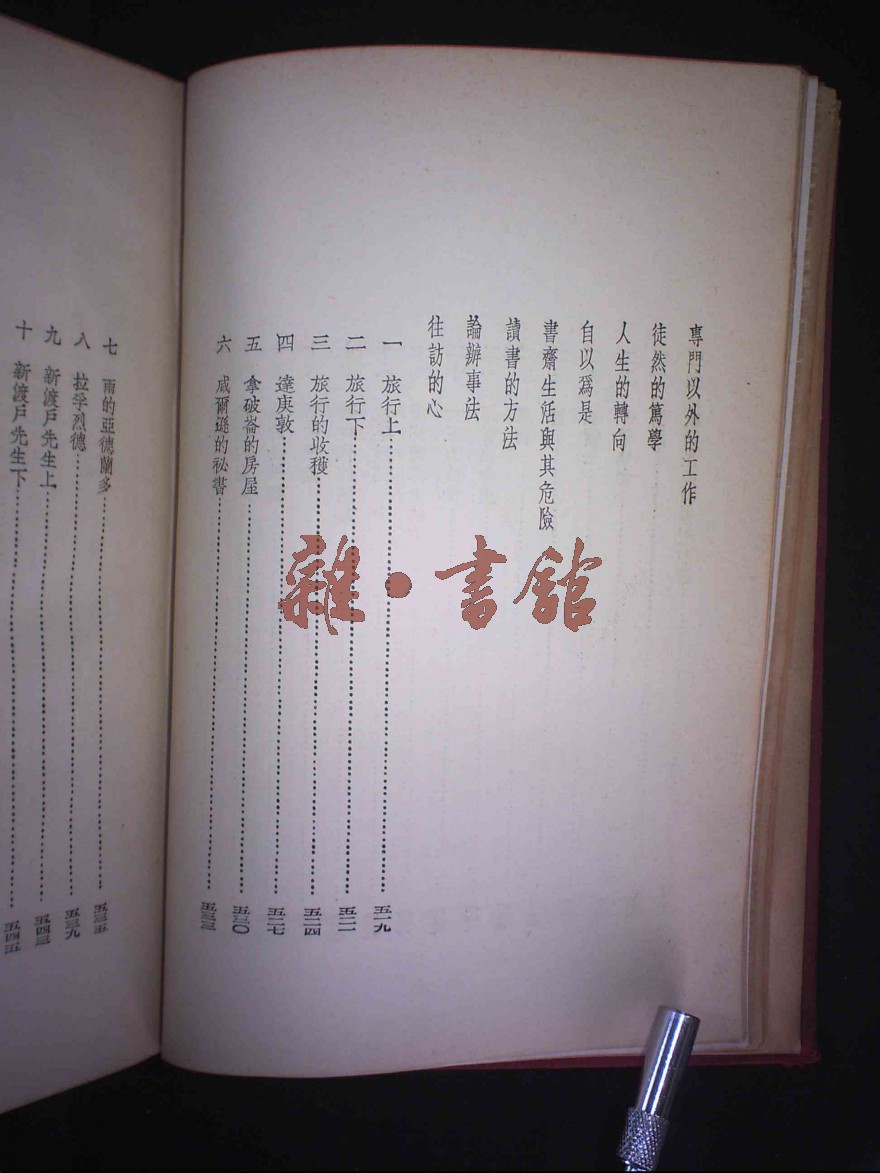 專門以外的工作
徒然的篤學
人生的轉向
自以爲是
書齋生活與其危險
讀書的方法
論辦事法
往訪的心
一 旅行上……五一九
二 旅行下……五二一
三 旅行的收獲……五二四
四 達庚敦……五二七
五 拿破崙的房屋……五三〇
六 威爾遜的秘書……五三三
七 雨的亞德蘭多……五三五
八 拉孚烈德……五三九
九 新渡戶先生上……五四三
十 新渡戶先生下……五四五
雜·書館